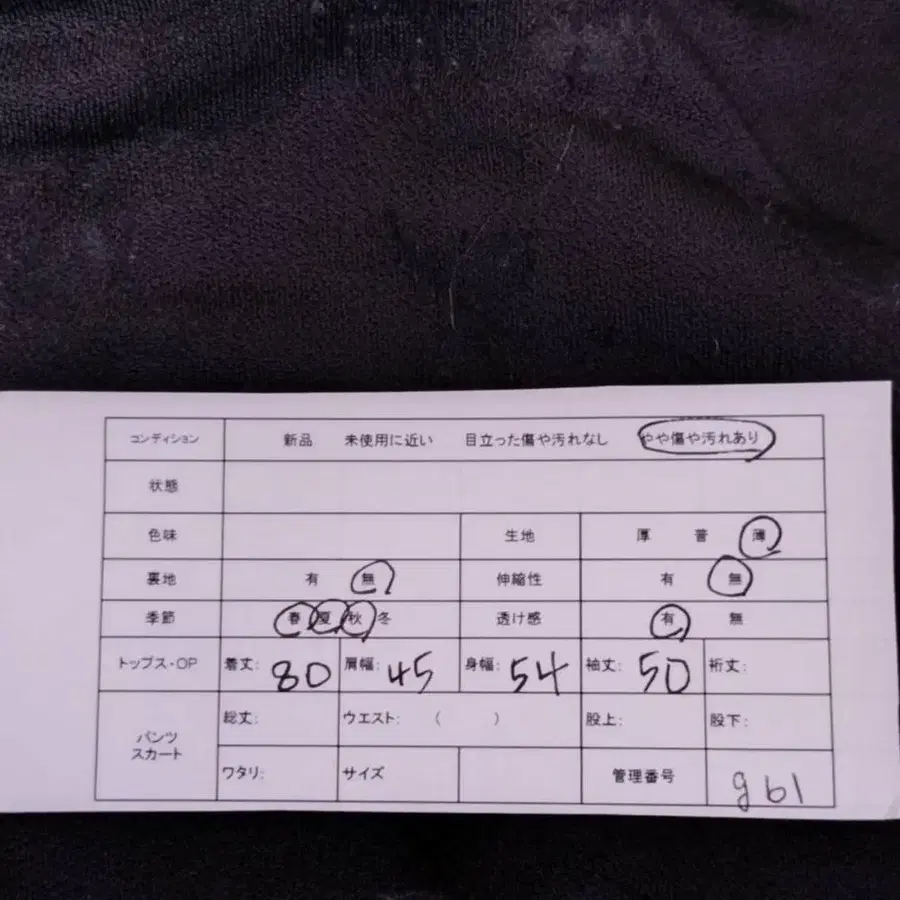 コンディション 新品 未使用に近い 目立った傷や汚れなし やや傷や汚れあり
状態
色味 生地 厚 普 薄
裏地 有 無 伸縮性 有 無
季節 春 夏 秋 冬 透け感 有 無
トップス・OP 着丈: 80 肩幅: 45 身幅: 54 袖丈: 50 裄丈:
パンツ 総丈: ウエスト: ( ) 股上: 股下:
スカート
ワタリ: サイズ 管理番号 g61